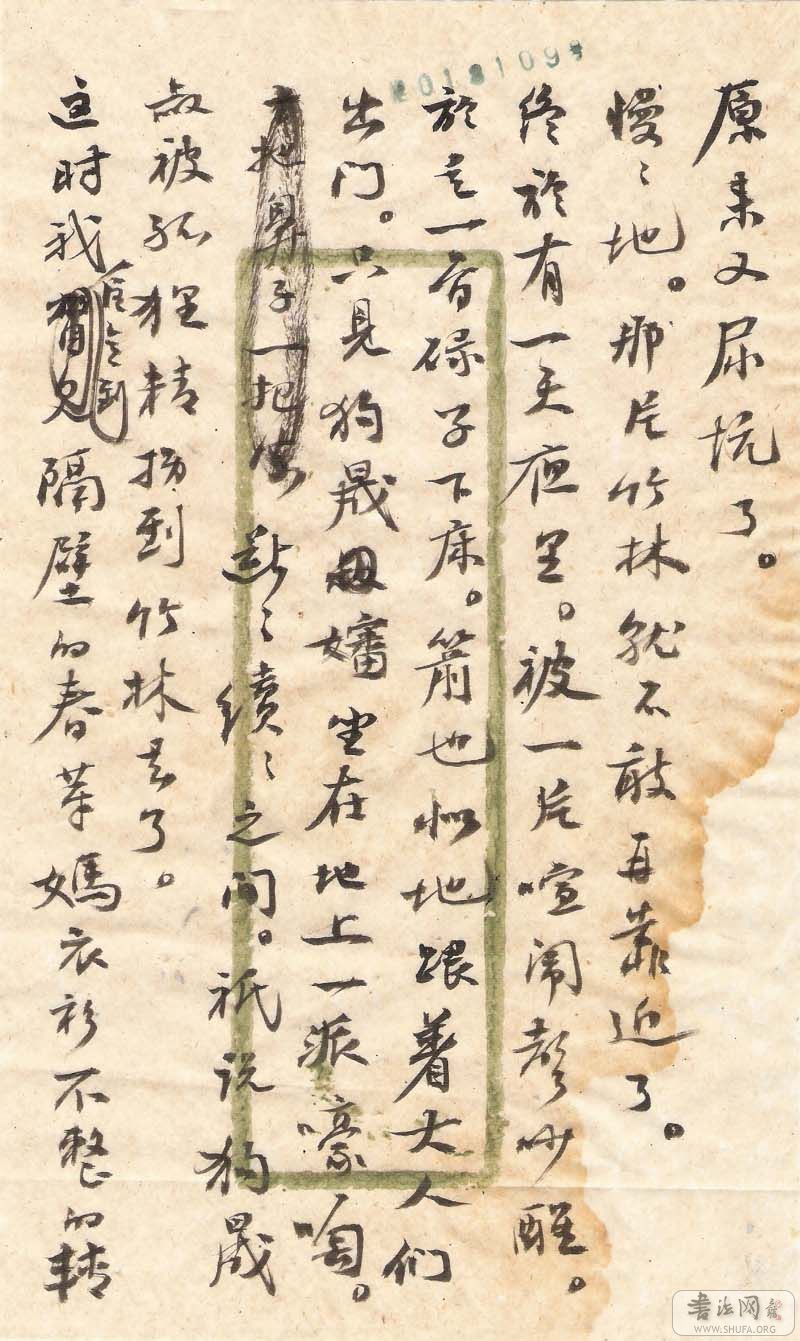 原来又尿坑了。
慢々地。那片竹林就不敢再靠近了。
终於有一天夜里。被一片喧闹声吵醒。
於是一骨碌子下床。箭也似地跟着大人们
出门。只见狗晟婶坐在地上一派嚎啕。
鼻子一把 断々续々之间。祇说狗晟
叔被狐狸精拐到竹林去了。
这时我隔壁的春芽媽衣衫不整的转
書法网
WWW.SHUFA.ORG